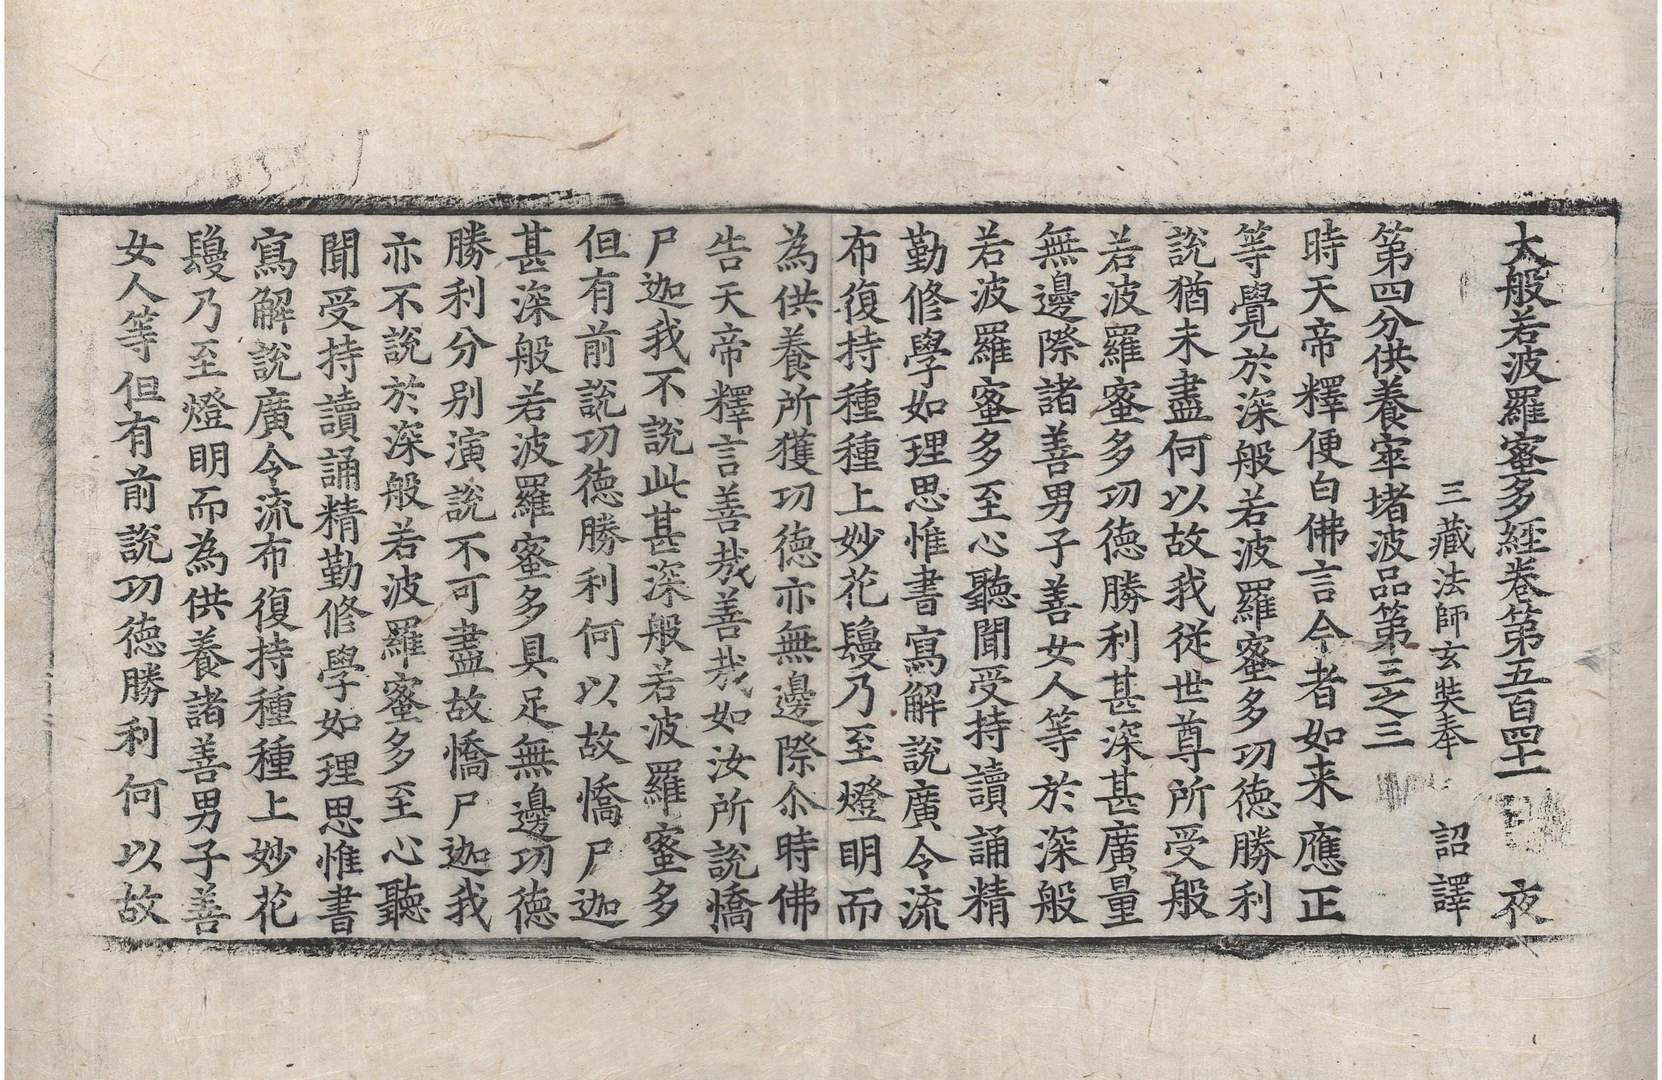 大般若波羅蜜多經卷第五百四十一 夜
三藏法師玄奘奉 詔譯
第四分供養窣堵波品第三之三
時天帝釋便白佛言今者如来應正
等覺於深般若波羅蜜多功德勝利
說猶未盡何以故我從世尊所受般
若波羅蜜多功德勝利甚深甚廣量
無邊際諸善男子善女人等於深般
若波羅蜜多至心聽聞受持讀誦精
勤修學如理思惟書寫解說廣令流
布復持種種上妙花鬘乃至燈明而
為供養所獲功德亦無邊際尒時佛
告天帝釋言善哉善哉如汝所說憍
尸迦我不說此甚深般若波羅蜜多
但有前說功德勝利何以故憍尸迦
甚深般若波羅蜜多具足無邊功德
勝利分別演說不可盡故憍尸迦我
亦不說於深般若波羅蜜多至心聽
聞受持讀誦精勤修學如理思惟書
寫解說廣令流布復持種種上妙花
鬘乃至燈明而為供養諸善男子善
女人等但有前說功德勝利何以故